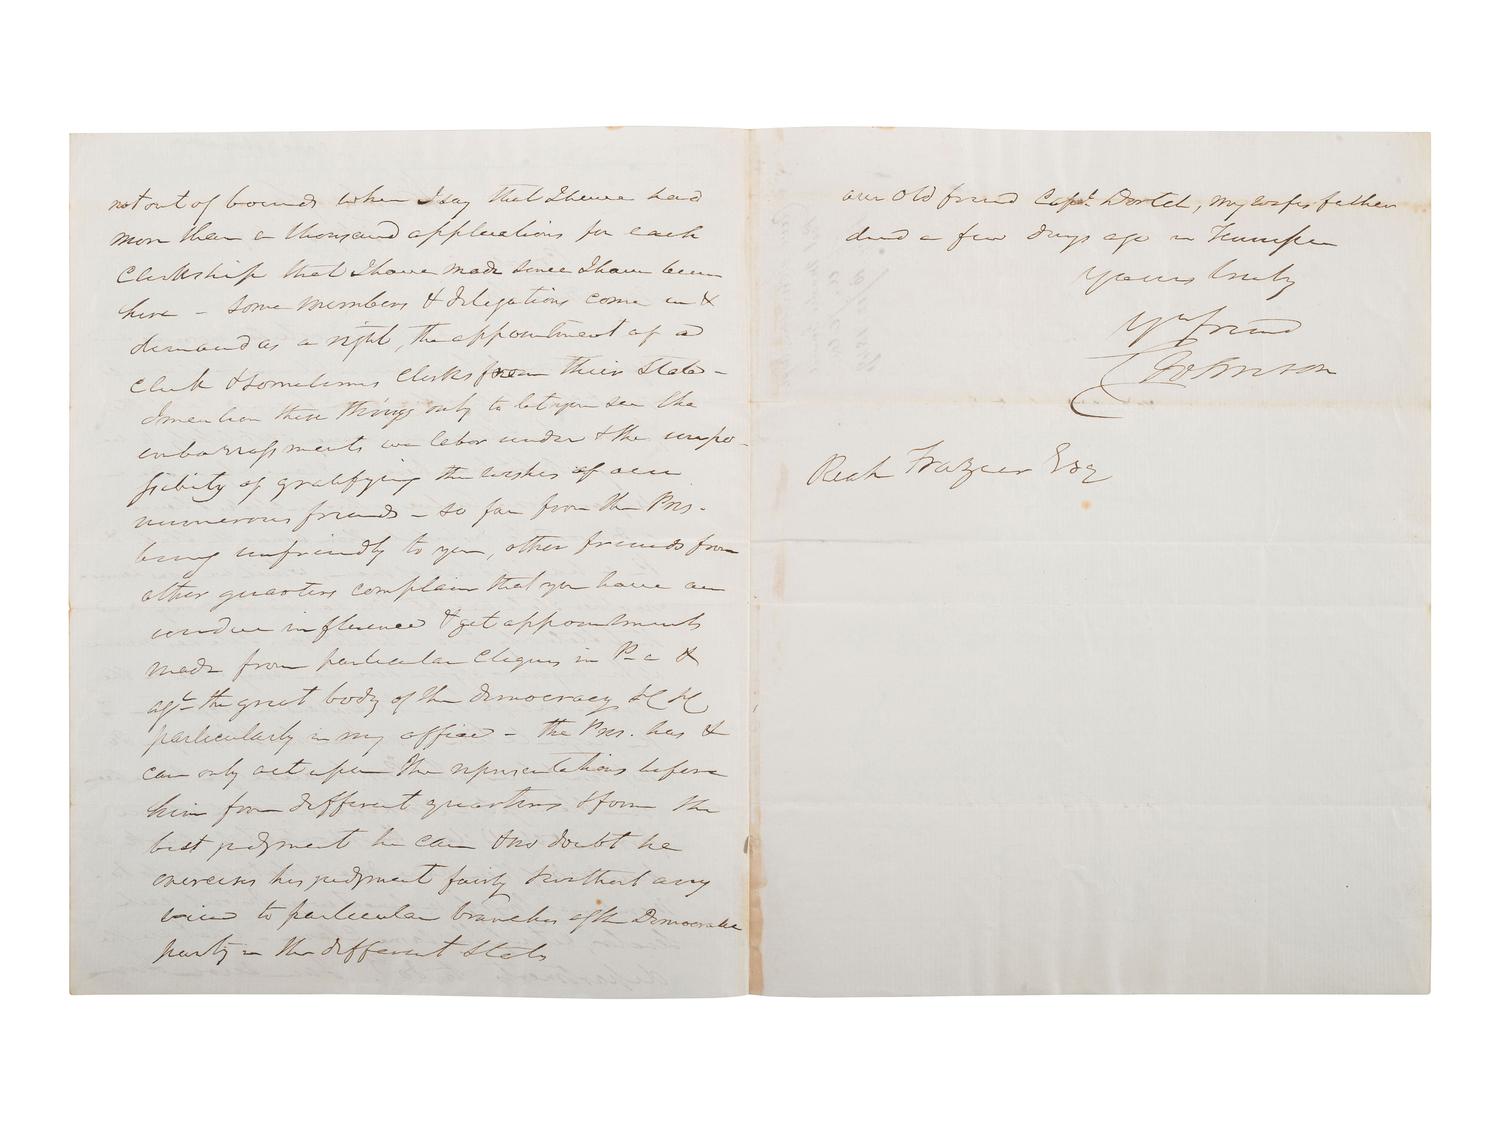 not out of bounds when I say that I have had
more than a thousand applications for each
Clerkship that I have made since I have been
here - some members & delegations come in &
demand as a right, the appointment of a
Clerk & sometimes Clerks from their State -
I mention these things only to let you see the
embarrassments we labor under & the impo-
ssibility of gratifying the wishes of our
numerous friends - so far from the Pres.
being unfriendly to you, other friends from
other quarters complain that you have an
undue influence & get appointments
made from particular Cliques in Pa &
agt the great body of the democracy &c &c
particularly in my office - the Pres. has &
can only act upon the representations before
him from different quarters & form the
best judgment he can & no doubt he
exercises his judgment fairly & without any
view to particular branches of the Democratic
party in the different States
our old friend Capt. Dortch, my wifes father
died a few days ago in Tennessee
Yours truly
Yr friend
C Johnson
Reah Frazer Esq